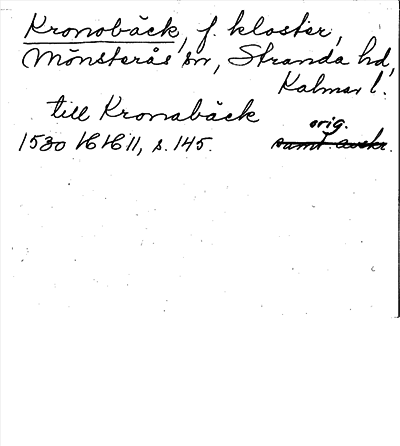 Kronobäck, f. kloster,
Mönsterås sn, Stranda hd,
Kalmar l.
till Kronabäck
orig.
1530 16/6 11, s. 145. samt. avskr.